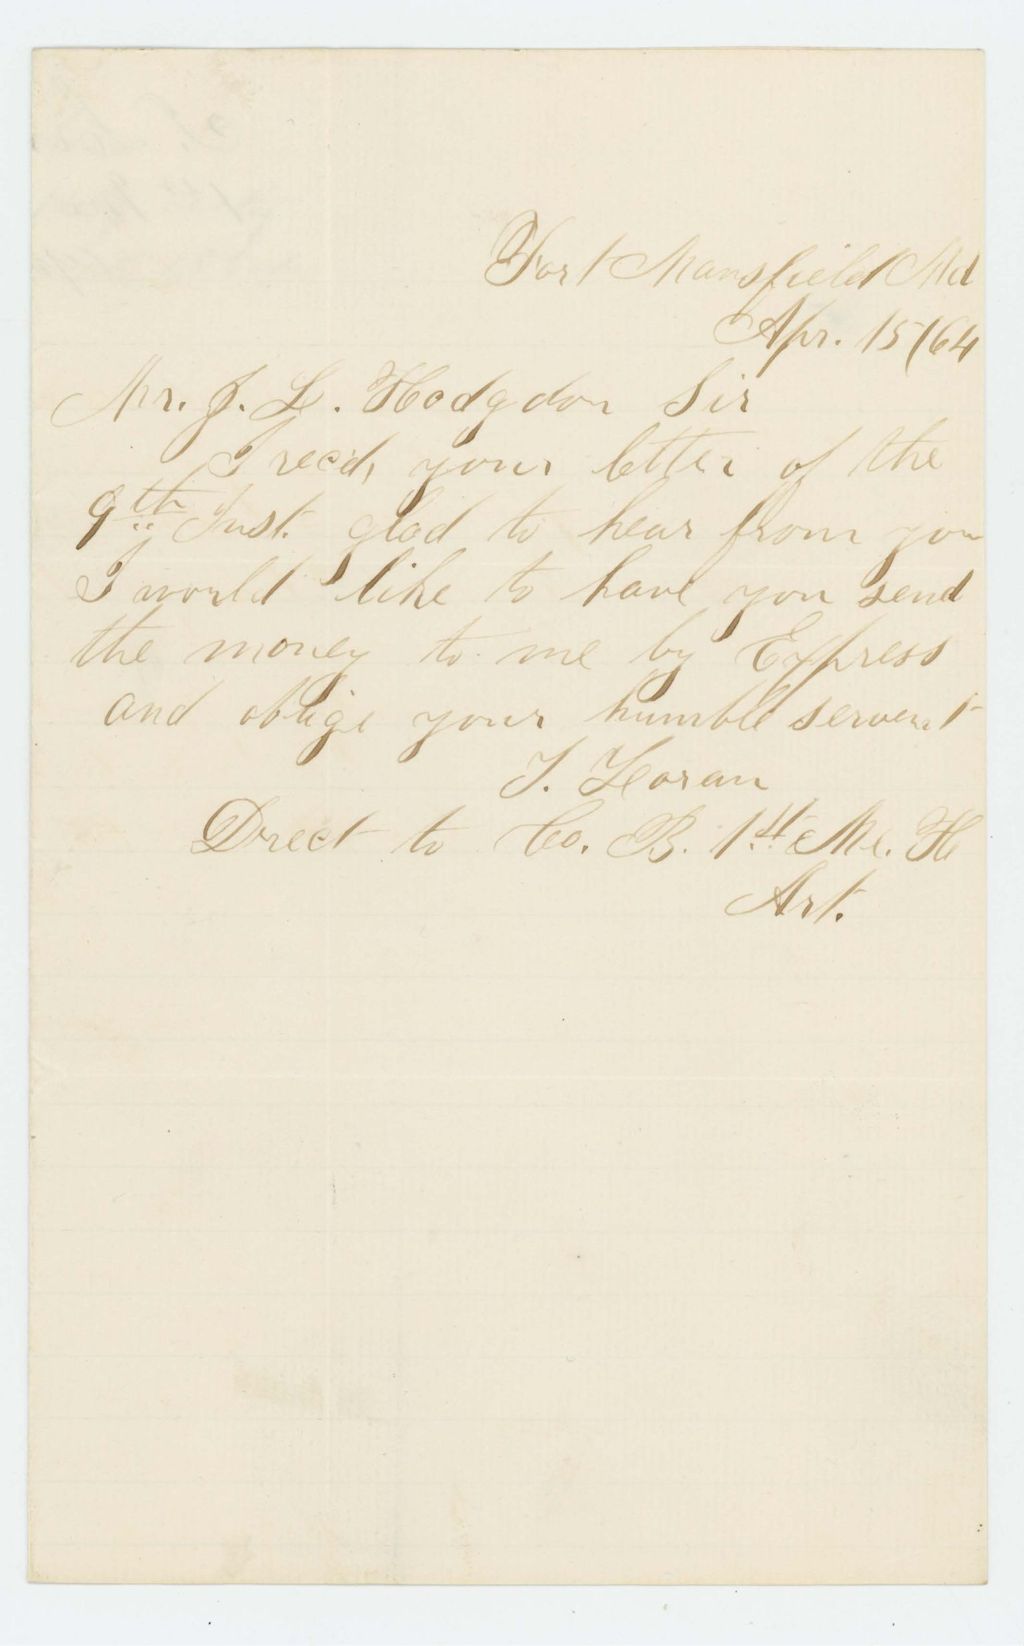 Fort Mansfield Md
Apr. 15/64
Mr. J. L. Hodgdon Sir
I recd, your letter of the
9th Inst. glad to hear from you
I would like to have you send
the money to me by Express
and oblige your humble servent
T. Horan
Drect to Co. B. 1st Me. H
Art.